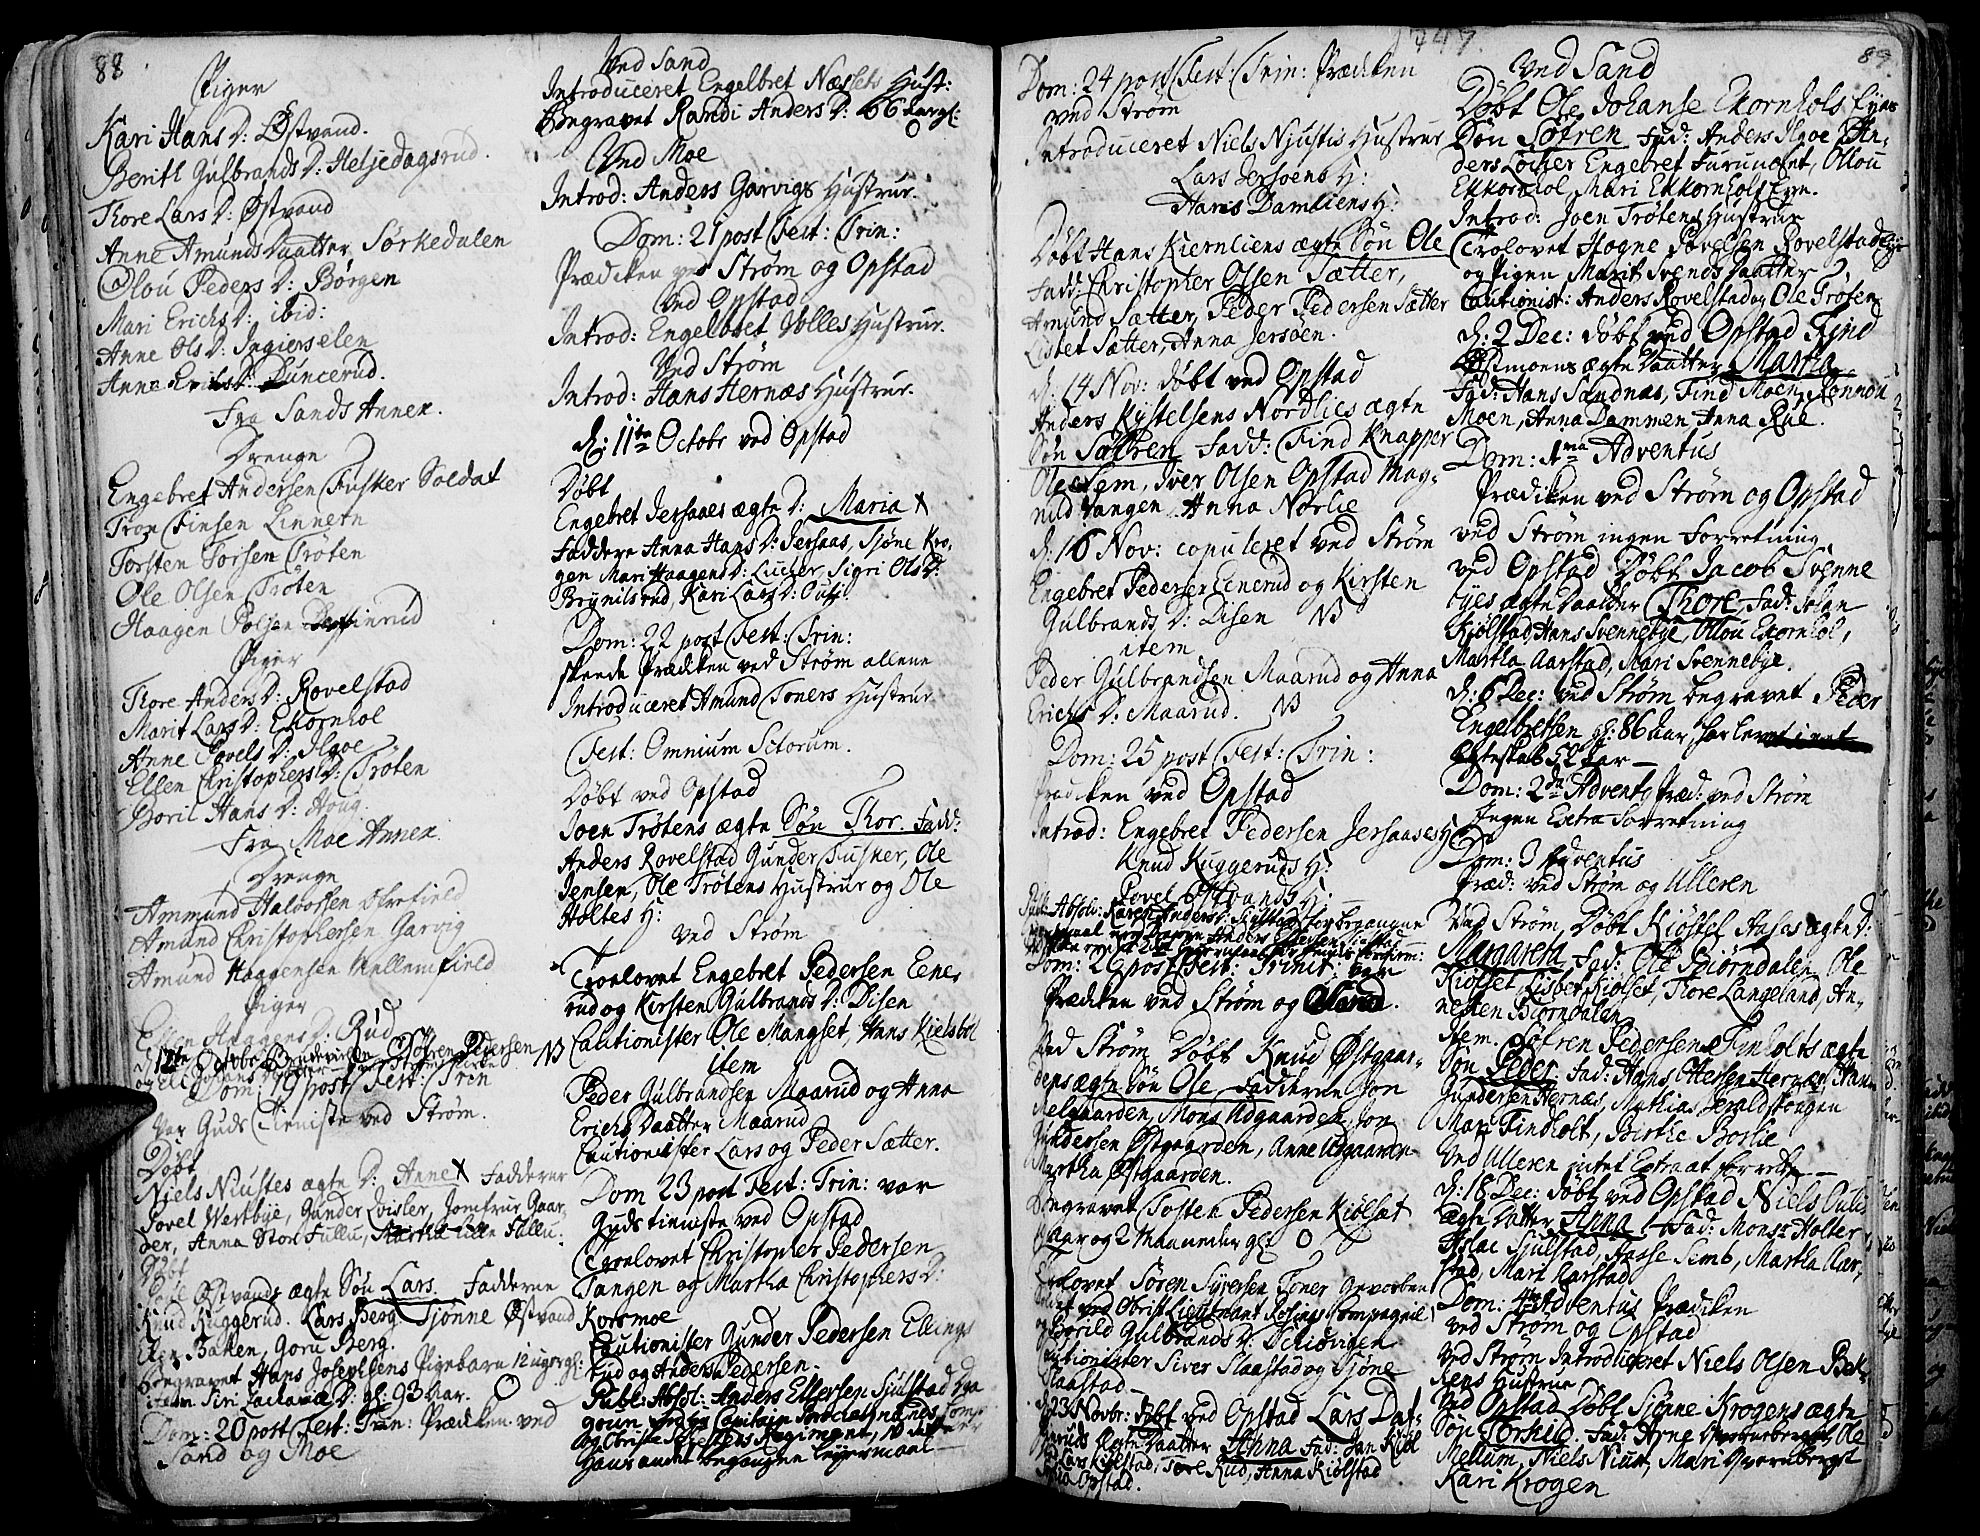 88
Piger
Kari Hans D: Østvand.
Berith Gulbrands D: Helsedagsrud.
Thore Lars D: Østvand
Anne Amunds Daatter Sørkedalen
Olou Peders D: Børgen
Mari Erichs D: ibid:
Anne Ols D: Ingierselen
Anne Erichs D: Buncerud.
Fra Sands Annex.
Drenge
Engebret Andersen Fusker Soldat
Tron Finsen Linneren
Torsten Torsen Trøten
Ole Olsen Trøten
Haagen Polsen
Piger
Thore Anders D: Rovelstad
Marit Lars D: Ekornhol
Anne Povels D: Ilgoe
Ellen Christophers D: Trøten
Boril Hans D: Houg.
Fra Moe Annex.
Drenge
Ammund Halvorsen
Amund Christophersen Garvig
Amund Haagensen Kullernfield
Piger
Haagens D: Rud
Dom: 19 post Fest: Trin
var Guds Tieniste ved Strøm.
Døbt
Niels Niustes ægte D: Anne X Fadderne
Povel Werkbye, Gunder Disler, Jomfrue Gaar
der, Anna Stor Fullu, Martha Lille Fullu.
Døbt
Østvands ægte Søn Lars. Fadderne
Knud Kuggerud. Lars Berg Tjønne Østvand
Elen Bakken, Goru Berg.
Begravet Hans Josephsens Pigebarn 12 uger gl:
item Siri Zacharias D: gl: 93 Aar. O
Dom: 20 post Fest: Trin: Prædiken ved
Sand og Moe
Ved Sand
Introduceret Engelbret Næssets Hust:
Begravet Randi Anders D: 66 Aar gl:
Ved Moe
Introd: Anders Garvigs Hustrur.
Dom: 21 post Fest: Trin:
Prædiken ved Strøm og Opstad
Ved Opstad
Introd: Engelbret Volles Hustrur.
Ved Strøm
Introd: Hans Hernæs Hustrur.
d: 11te Octobr ved Opstad
Døbt
Engebret Jersaaes ægte D: Maria X
Faddere Anna Hans D: Jersaas, Tjøne Kro-
gen Mari Haagens D: Lucher, Sigri Ols D:
Brynilsrud, Kari Lars D: Ouli
Dom: 22 post Fest: Trin:
skeede Prædiken ved Strøm allene
Introduceret Amund Toners Hustrur
Fest: Omnium Sctorum.
Døbt ved Opstad
Joen Trøtens ægte Søn Thor. Fadd:
Anders Rovelstad Gunder Fusker, Ole
Jensen, Ole Trøtens Hustrur og Ole
Holtes H:
ved Strøm
Troelovet Engebret Pedersen Eene-
rud og Kirsten Gulbrands D: Disen
NB Cautionister Ole Mangset, Hans Kielsbøl
item
Peder Gulbrandsen Maarud og Anna
Erichs Daatter Maarud
Cautionister Lars og Peder Sætter.
Dom 23 post Fest: Trin: var
Guds tieniste ved Opstad
Troelovet Christopher Pedersen
Tangen og Martha Christophers D:
Korsmoe
Cautionister Gunder Pedersen Ellings
rud og Anders Pedersen.
Publ: Absol: Anders Ellefsen Siulstad Dra
goun
hans andet begangen Leyermaal
1747.
Dom: 24 post Fest: Trin: Prædiken
ved Strøm
Introduceret Niels Niustis Hustrur
Lars Jersoens H:
Hans Damliens H:
Døbt Hans Kiernliens ægte Søn Ole
Fadd: Christopher Olsen Sætter,
Amund Sætter, Peder Pedersen Sætter
Lisbet Sætter, Anna Jersøen.
d: 14 Nov: døbt ved Opstad
Anders Kystelsens Nordlies ægte
Søn Søfren Fadd: Find Knapper
Ole Sem, Iver Olsen Opstad Mag-
nild Vangen Anna Norlie
d: 16 Nov: copuleret ved Strøm
Engebret Pedersen Eenerud og Kirsten
Gulbrands D: Disen NB
item
Peder Gulbrandsen Maarud og Anna
Erichs D: Maarud. NB
Dom: 25 post Fest: Trin:
Prædiken ved Opstad
Introd: Engebret Pedersen Jersaases H:
Knud Kuggeruds H:
Povel Østvands H:
Dom: 26 post Fest: Trinit: var
Prædiken ved Strøm og
Ved Strøm Døbt Knud Østgaar-
dens ægte Søn Ole Fadderne Jon
Melgaarden, Mons Udgaarden, Jon
Gundersen Østgaarden, Anne Udgaarden
Martha Østgaarden.
Begravet Tosten Pedersen Kiølsæt
Aar og 2 Maaneder gl: O
Troelovet Søren Syversen Toner Geworben
og Borild Gulbrands D: Skiøvigen
Cautionister Siver Slaastad og Tjøne
Slaastad
d: 23 Novbr: døbt ved Opstad Lars Daf-
ægte Daatter Anna Fad: Jan Kiøl
stad Lars Kiølstad, Tore Rud, Anna Kiølstad
Opstad.
89
Ved Sand
Døbt Ole Johanse Ekornhols Eyes
Søn Søfren Fad: Anders Ilgoe An-
ders Løcher Engebret Furundet, Ollou
Ekkornhol, Mari Ekkornhols Eye.
Introd: Joen Trøtens Hustrur
Trolovet Hogne Povelsen Rovelstad Eye
og Pigen Marit Svends Daatter
Cautionist: Anders Rovelstad og Ole Trøten
d: 2 Dec: døbt ved Opstad Find
Østmoens ægte Daatter Martha
Fad: Hans Sandnæs, Find Moen, Rønnou
Moen, Anna Dammen Anna Rue.
Dom: 1ma Adventus
Prædiken ved Strøm og Opstad
ved Strøm ingen Forretning
ved Opstad Døbt Jacob Svenne
byes ægte Daatter Thore, Fad: Johan
Kiølstad, Hans Svennebye, Ollou Ekornhol,
Martha Aarstad, Mari Svennebye.
d: 6 Dec: ved Strøm begravet Peder
Engelbretsen gl: 86 Aar har levet i et
Egteskab 52 Aar
Dom: 2da Advent Præd: ved Strøm
Ingen Extra Forretning
Dom: 3 Adventus
Præd: ved Strøm og Ulleren
Ved Strøm, Døbt Kiøstel Aases ægte D:
Margareta Fad: Ole Biørndalen, Ole
Kiølset, Lisbet Kiølset, Thore Langeland, An-
ne Biørndalen
Item. Søfren Pedersens Finholts ægte
Søn Peder Fad: Hans Ottersen Hernæs, Hans
Gundersen Hernæs, Mathias Heraldstangen
Mari Findholt, Birthe Borlie
Ved Ulleren intet Extra at forrette
d: 16 Dec: døbt ved Opstad Niels Oulies
ægte Datter Anna Fad: Monsr Holter
Aslac Siulstad, Aasse Semb, Martha Aar-
stad, Mari Aarstad
Dom: 4ta Adventus Prædiken
ved Strøm og Opstad
Ved Strøm Introduceret Niels Olsen Bek-
kens Hustrue
Ved Opstad Døbt Tjønne Krogens ægte
Søn Torkild. Fad: Arne Qvernberget, Ole
Mellum, Niels Niust, Mari Qvernberget
Kari Krogen